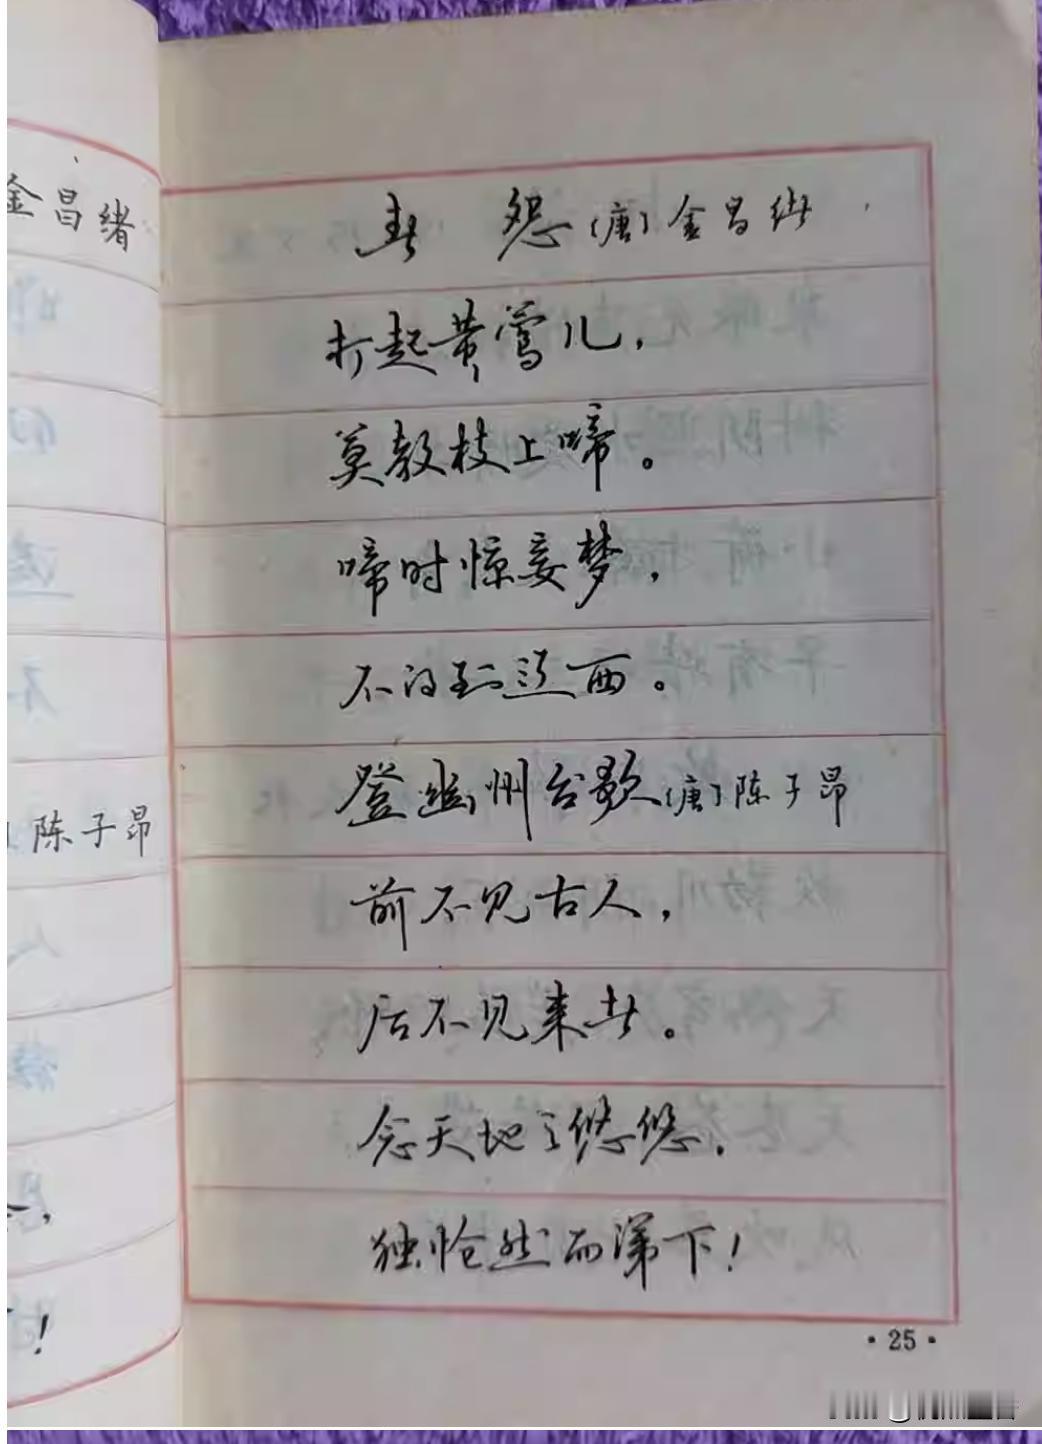 金昌绪
陈子昂
！
春 怨（唐）金昌绪
打起黄莺儿，
莫教枝上啼。
啼时惊妾梦，
不得到辽西。
登幽州台歌（唐）陈子昂
前不见古人，
后不见来者。
念天地之悠悠，
独怆然而涕下！
·25·